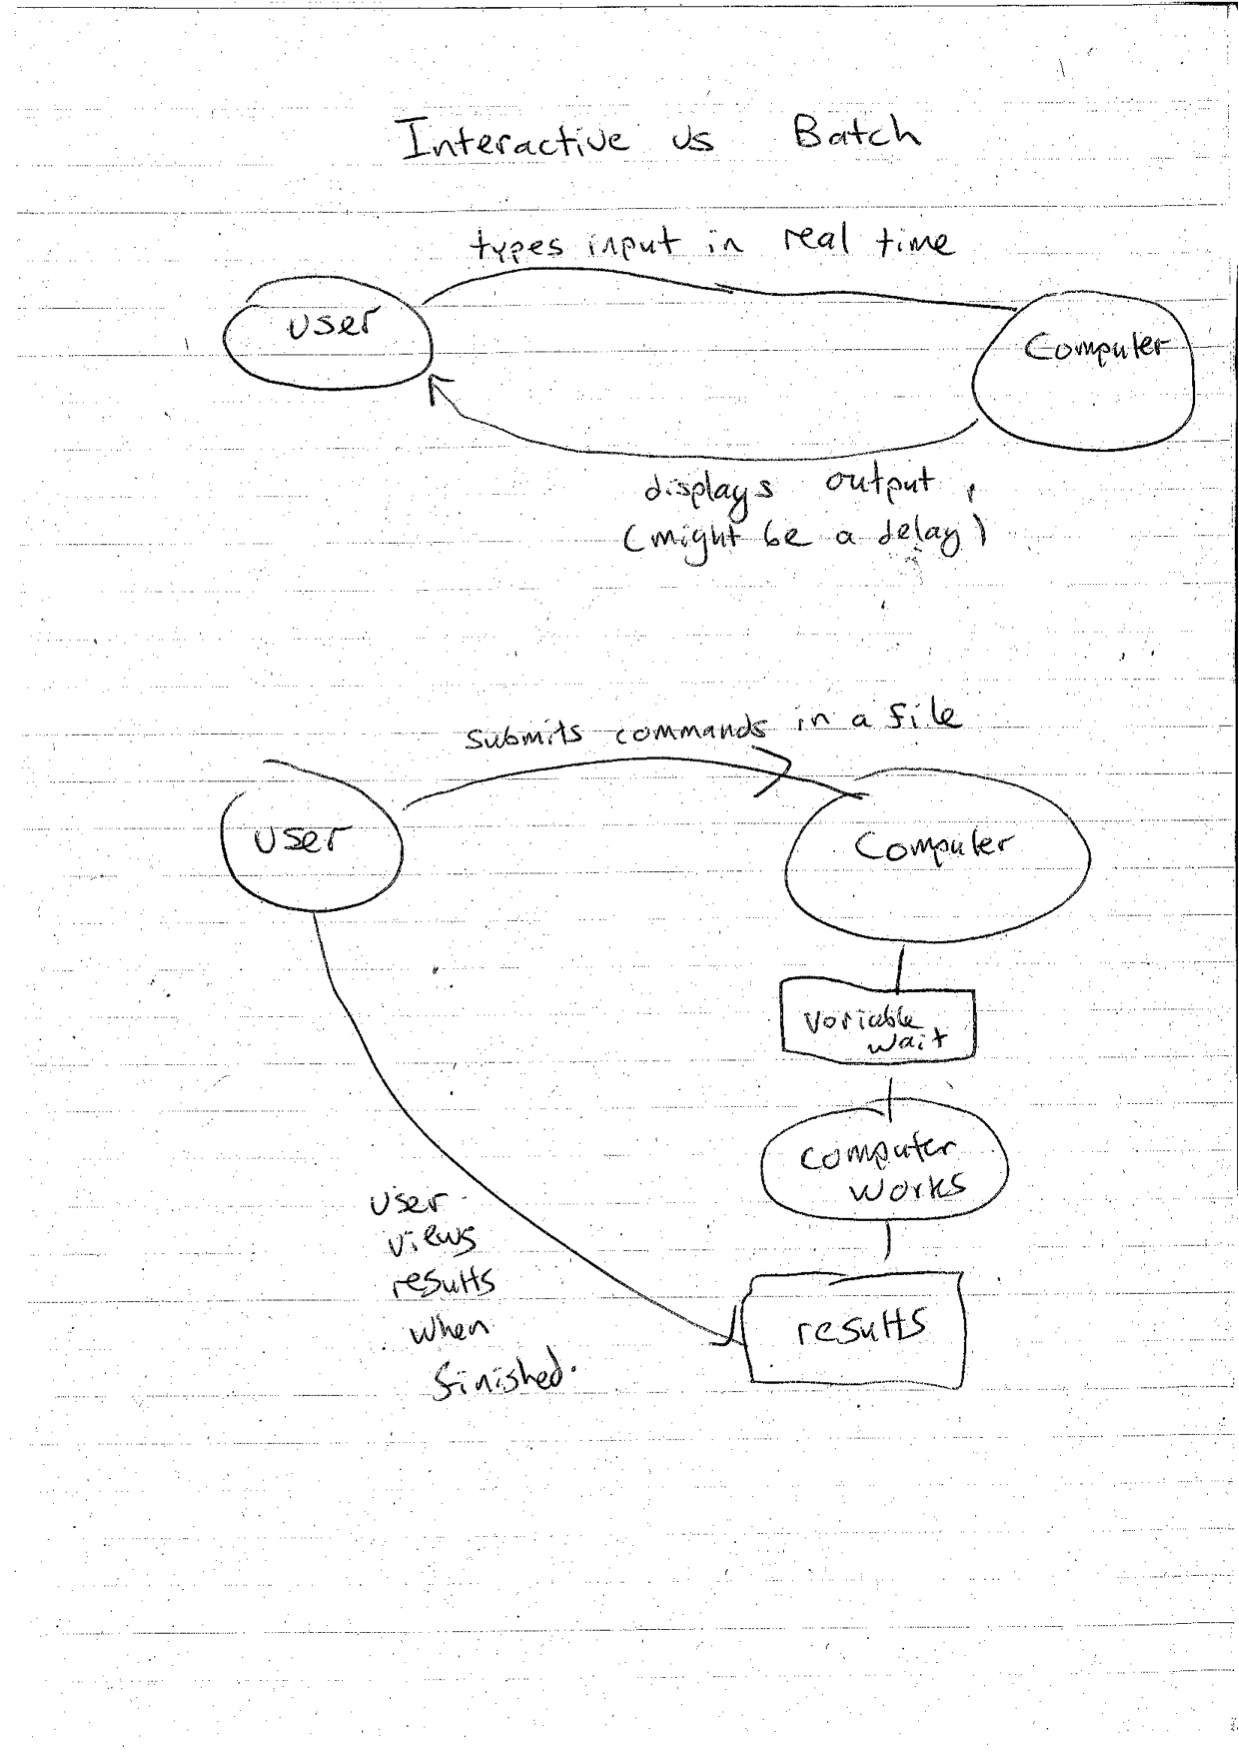 Interactive vs Batch
types input in real time
user
Computer
displays output,
(might be a delay)
submits commands in a file
user
Computer
variable
wait
computer
works
user
views
results
when
finished.
results